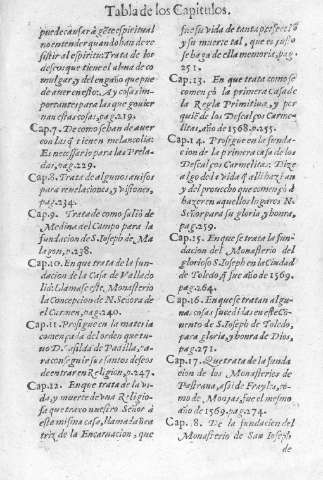 Tabla de los Capitulos.
puede causar à gēte espiritual
no entender quando han de re
sistir al espiritu: Trata de los
deseos que tiene el alma de co
mulgar, y del engaño que pue
de auer en esto: Ay cosas im-
portantes para las que gouier
nan estas casas, pag. 219.
Cap. 7. De como se han de auer
con las q̃ tienen melancolia:
Es necessario para las Prela-
das, pag. 229.
Cap. 8. Trata de algunos auisos
para reuelaciones, y visiones,
pag. 234.
Cap. 9. Trata de como saliò de
Medina del Campo para la
fundacion de S. Ioseph de Ma
lagon, p. 238.
Cap. 10. En que trata de la fun-
dacion de la Casa de Vallado
lid: Llamase este, Monasterio
la Concepcion de N. Señora de
el Carmen, pag. 240.
Cap. 11. Prosigue en la materia
començada del orden que tu-
uo D. Casilda de Padilla, pa-
ra conseguir sus santos deseos
de entrar en Religion, p. 247.
Cap. 12. En que trata de la vi-
da, y muerte de vna Religio-
sa que traxo nuestro Señor à
esta misma casa, llamada Bea
triz de la Encarnacion, que
fue su vida de tanta perfecciō
y su muerte tal, que es justo
se haga de ella memoria, pag.
251.
Cap. 13. En que trata como se
començò la primera casa de
la Regla Primitiua, y por
quiē de los Descalços Carme-
litas, año de 1568. p. 255.
Cap. 14. Prosigue en la funda-
cion de la primera casa de los
Descalços Carmelitas: Dize
algo de la vida q̃ alli hazian
y del prouecho que començò à
hazer en aquellos lugares N.
Señor para su gloria, y honra,
pag. 259.
Cap. 15. En que se trata la fun-
dacion del Monasterio del
glorioso S. Ioseph en la Ciudad
de Toledo, q̃ fue año de 1569.
pag. 264.
Cap. 16. En que se tratan algu-
nas cosas sucedidas en este Cō-
uento de S. Ioseph de Toledo,
para gloria, y honra de Dios,
pag. 271.
Cap. 17. Que trata de la funda
cion de los Monasterios de
Pastrana, assi de Frayles, co-
mo de Monjas, fue el mismo
año de 1569. pag. 274.
Cap. 8. De la fundacion del
Monasterio de San Ioseph
de